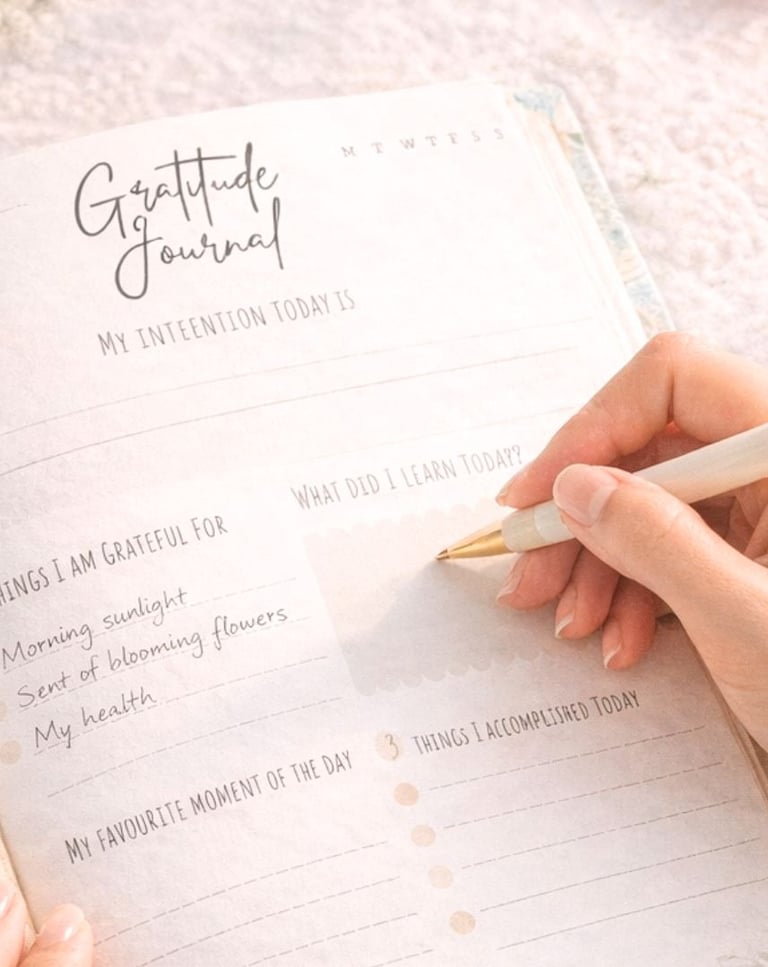 Gratitude
Journal
M T W T F S S
My inteention today is
What did I learn today?
hings I am Grateful For
Morning sunlight
Sent of blooming flowers
My health
3 things I accomplished today
My favourite moment of the day